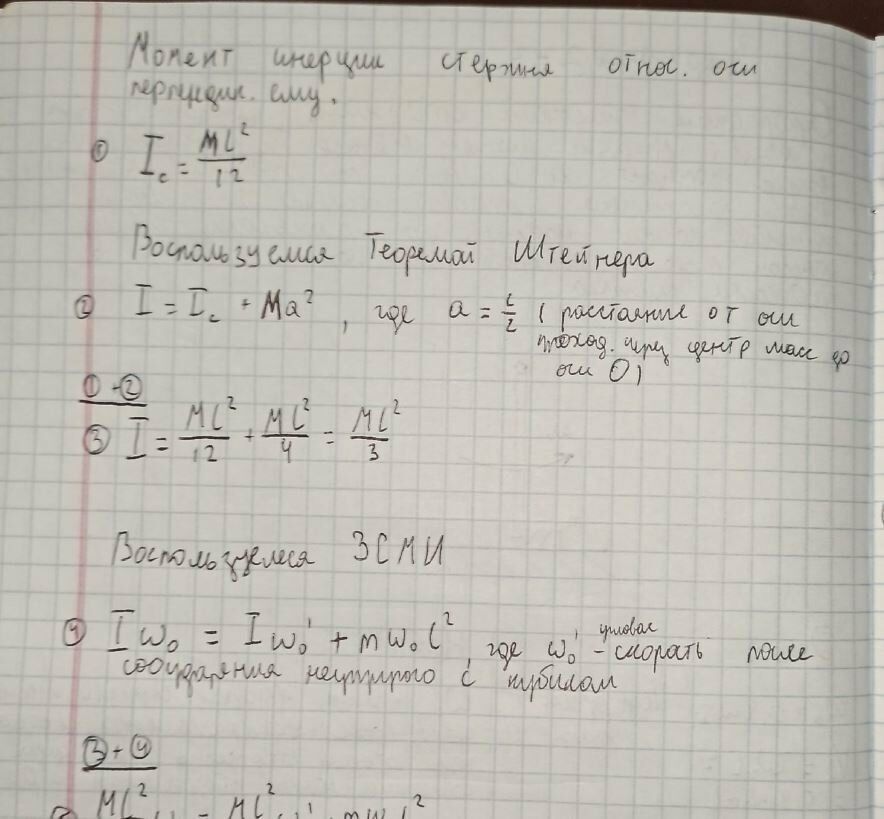 Момент инерции стержня относ. оси
перпендик. ему.
① I_c = ML²/12
Воспользуемся Теоремай Штейнера
② I = I_c + Ma², где a = L/2 (расстояние от оси
проход. через центр масс до
оси O)
①→②
③ I = ML²/12 + ML²/4 = ML²/3
Воспользуемся ЗСМИ
④ Iω₀ = Iω₀' + mω₀L², где ω₀' - угловая скорость после
соударения неупругого с кубиком
③+④
ML² = ML²